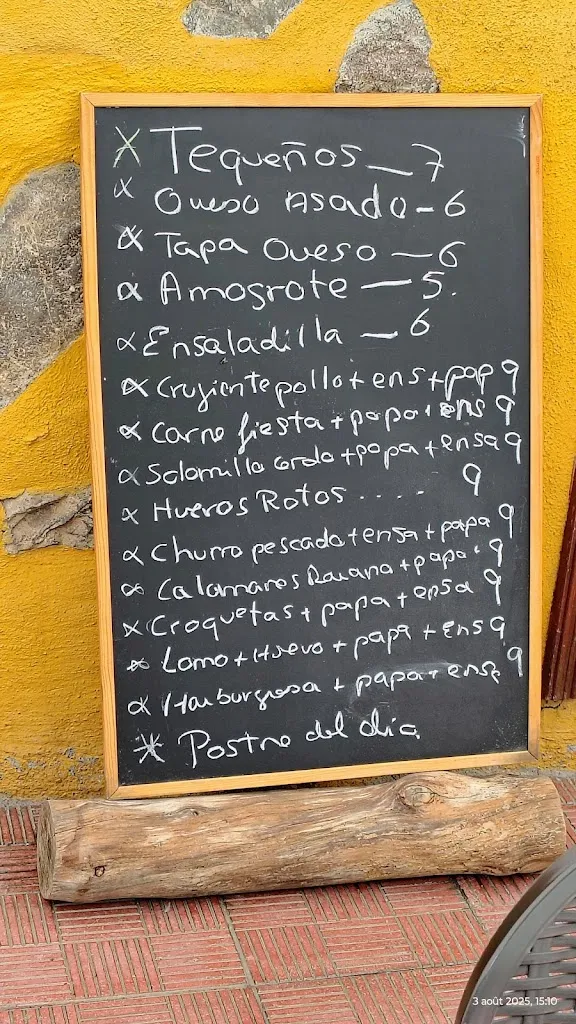 X Tequeños — 7
x Queso Asado - 6
x Tapa Queso — 6
x Amogrote — 5.
x Ensaladilla — 6
x Crujiente pollo + ens + pap 9
x Carne fiesta + papa + ens 9
x Solomillo cerdo + papa + ensa 9
x Huevos Rotos .... 9
x Churro pescado + ensa + papa 9
x Calamares + papa 9
x Croquetas + papa + ensa 9
x Lomo + Huevo + papa + ens 9
x Hamburgesa + papa + ensa 9
* Postre del día
3 août 2025, 15:10